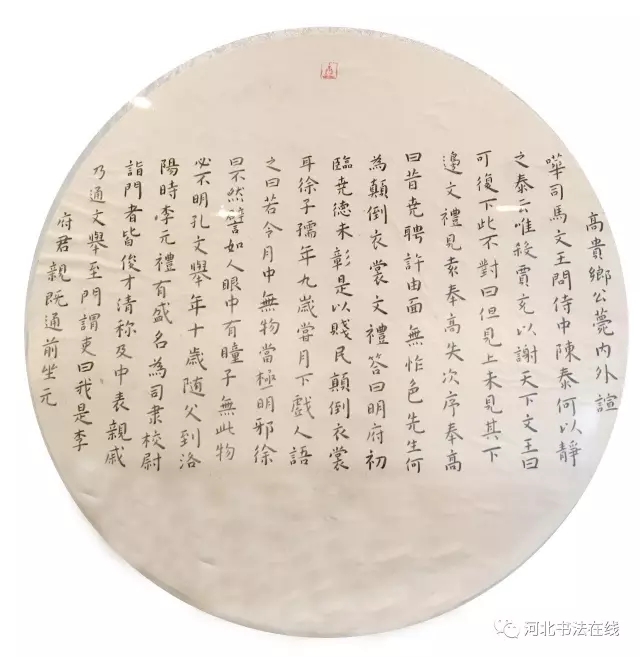 高貴鄉公薨內外諠
嘩司馬文王問侍中陳泰何以靜
之泰云唯殺賈充以謝天下文王曰
可復下此不對曰但見上未見其下
邊文禮見袁奉高失次序奉高
曰昔堯聘許由面無怍色先生何
為顛倒衣裳文禮答曰明府初
臨堯德未彰是以賤民顛倒衣裳
耳徐子孺年九歲嘗月下戲人語
之曰若令月中無物當極明邪徐
曰不然譬如人眼中有瞳子無此物
必不明孔文舉年十歲隨父到洛
陽時李元禮有盛名為司隶校尉
詣門者皆俊才清称及中表親戚
乃通文舉至門謂吏曰我是李
府君親既通前坐元
河北书法在线